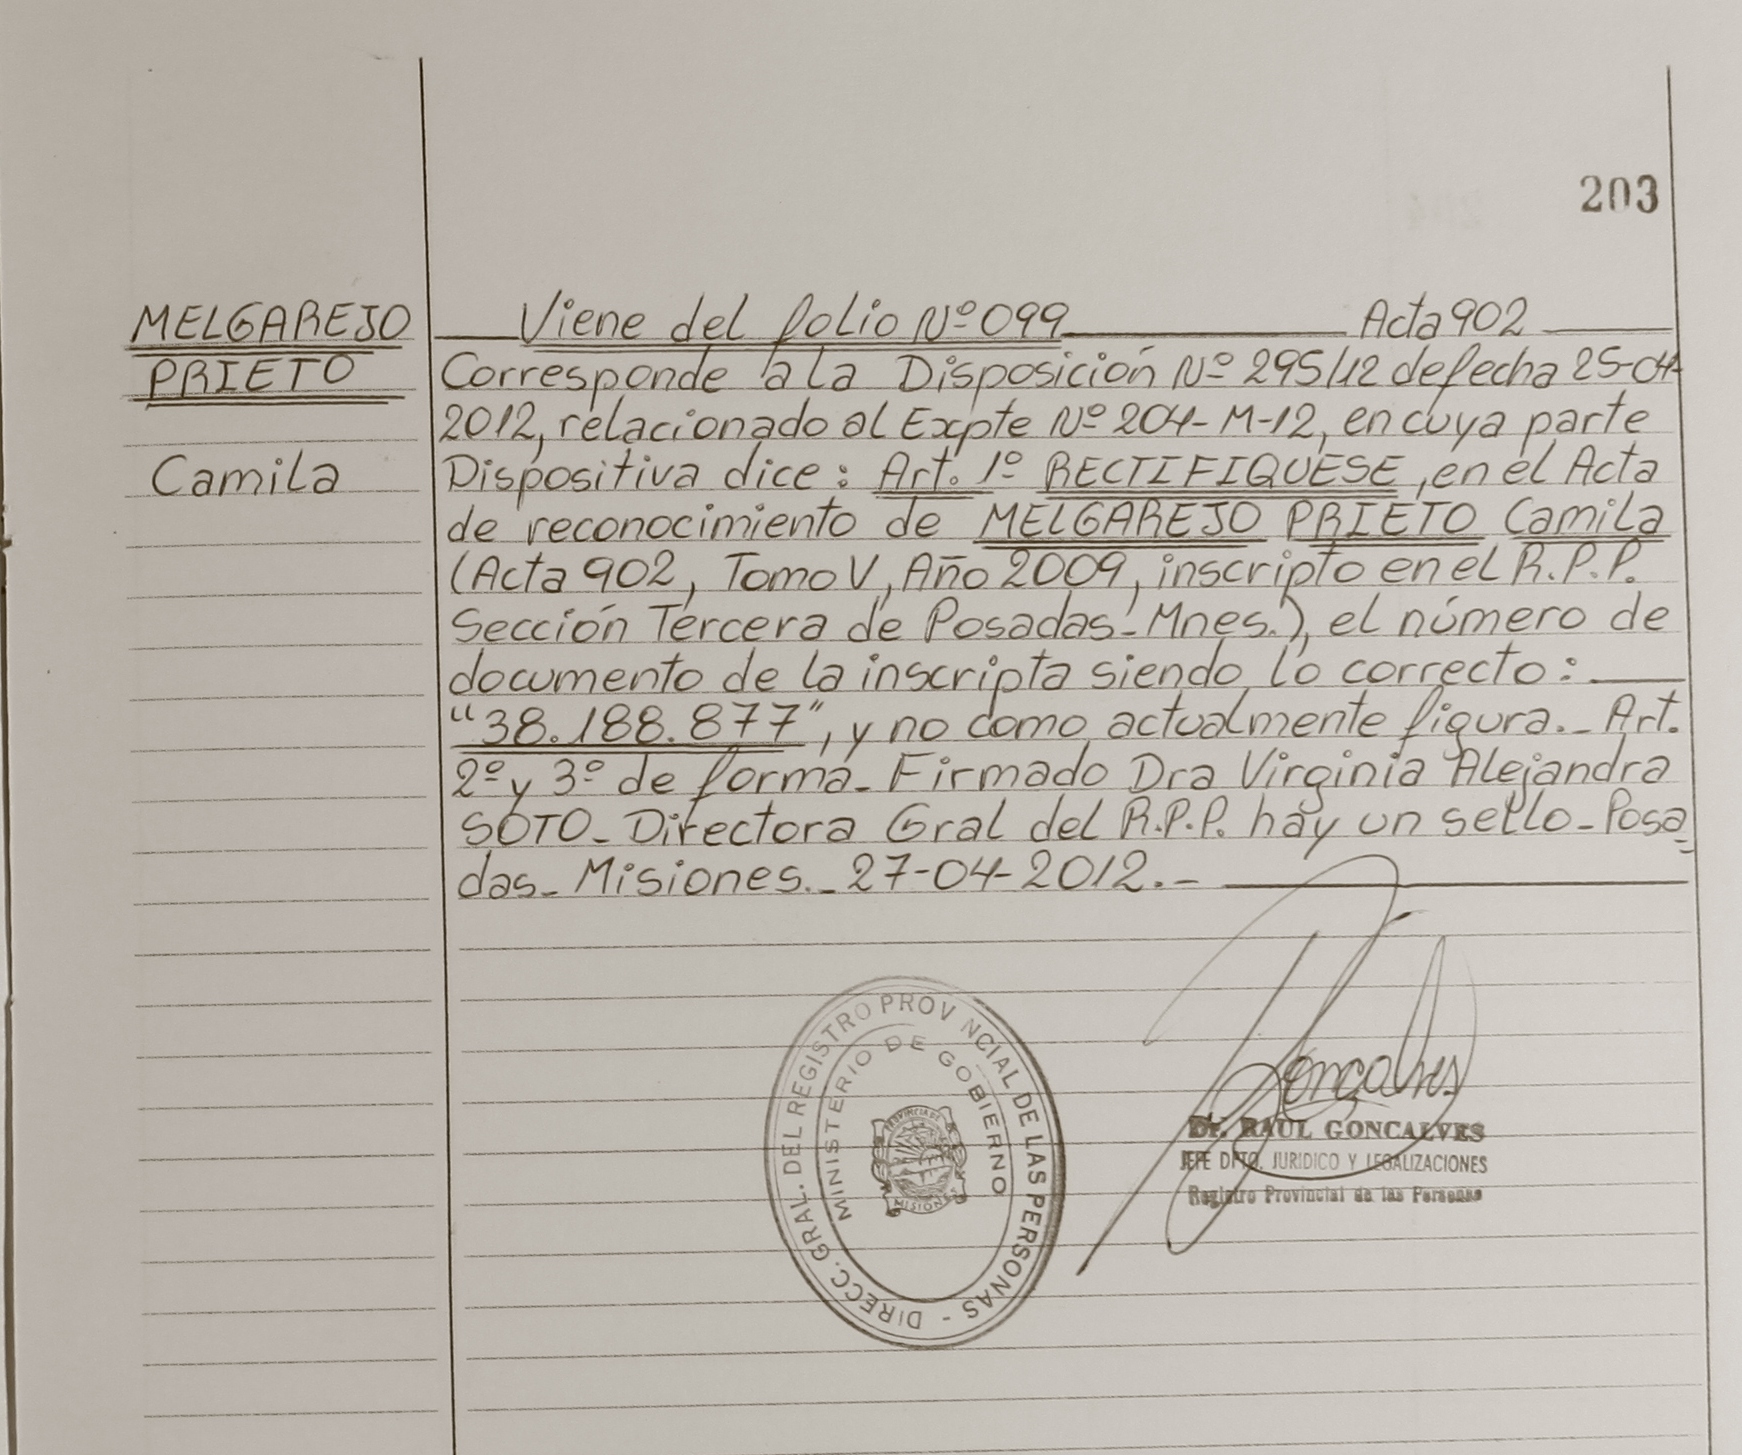 203
MELGAREJO
PRIETO
Camila
Viene del folio Nº 099 Acta 902
Corresponde a la Disposición Nº 295/12 de fecha 25-04-
2012, relacionado al Expte Nº 204-M-12, en cuya parte
Dispositiva dice: Art. 1º RECTIFIQUESE, en el Acta
de reconocimiento de MELGAREJO PRIETO Camila
(Acta 902, Tomo V, Año 2009, inscripto en el R.P.P.
Sección Tercera de Posadas-Mnes.), el número de
documento de la inscripta siendo lo correcto:
"38.188.877", y no como actualmente figura._ Art.
2º y 3º de forma_ Firmado Dra Virginia Alejandra
SOTO_ Directora Gral del R.P.P. hay un sello_Posa=
das_ Misiones._ 27-04-2012.-
DIRECC. GRAL. DEL REGISTRO PROVINCIAL DE LAS PERSONAS -
MINISTERIO DE GOBIERNO
PROVINCIA DE
MISIONES
Goncalves
Dr. RAUL GONCALVES
JEFE DPTO. JURIDICO Y LEGALIZACIONES
Registro Provincial de las Personas